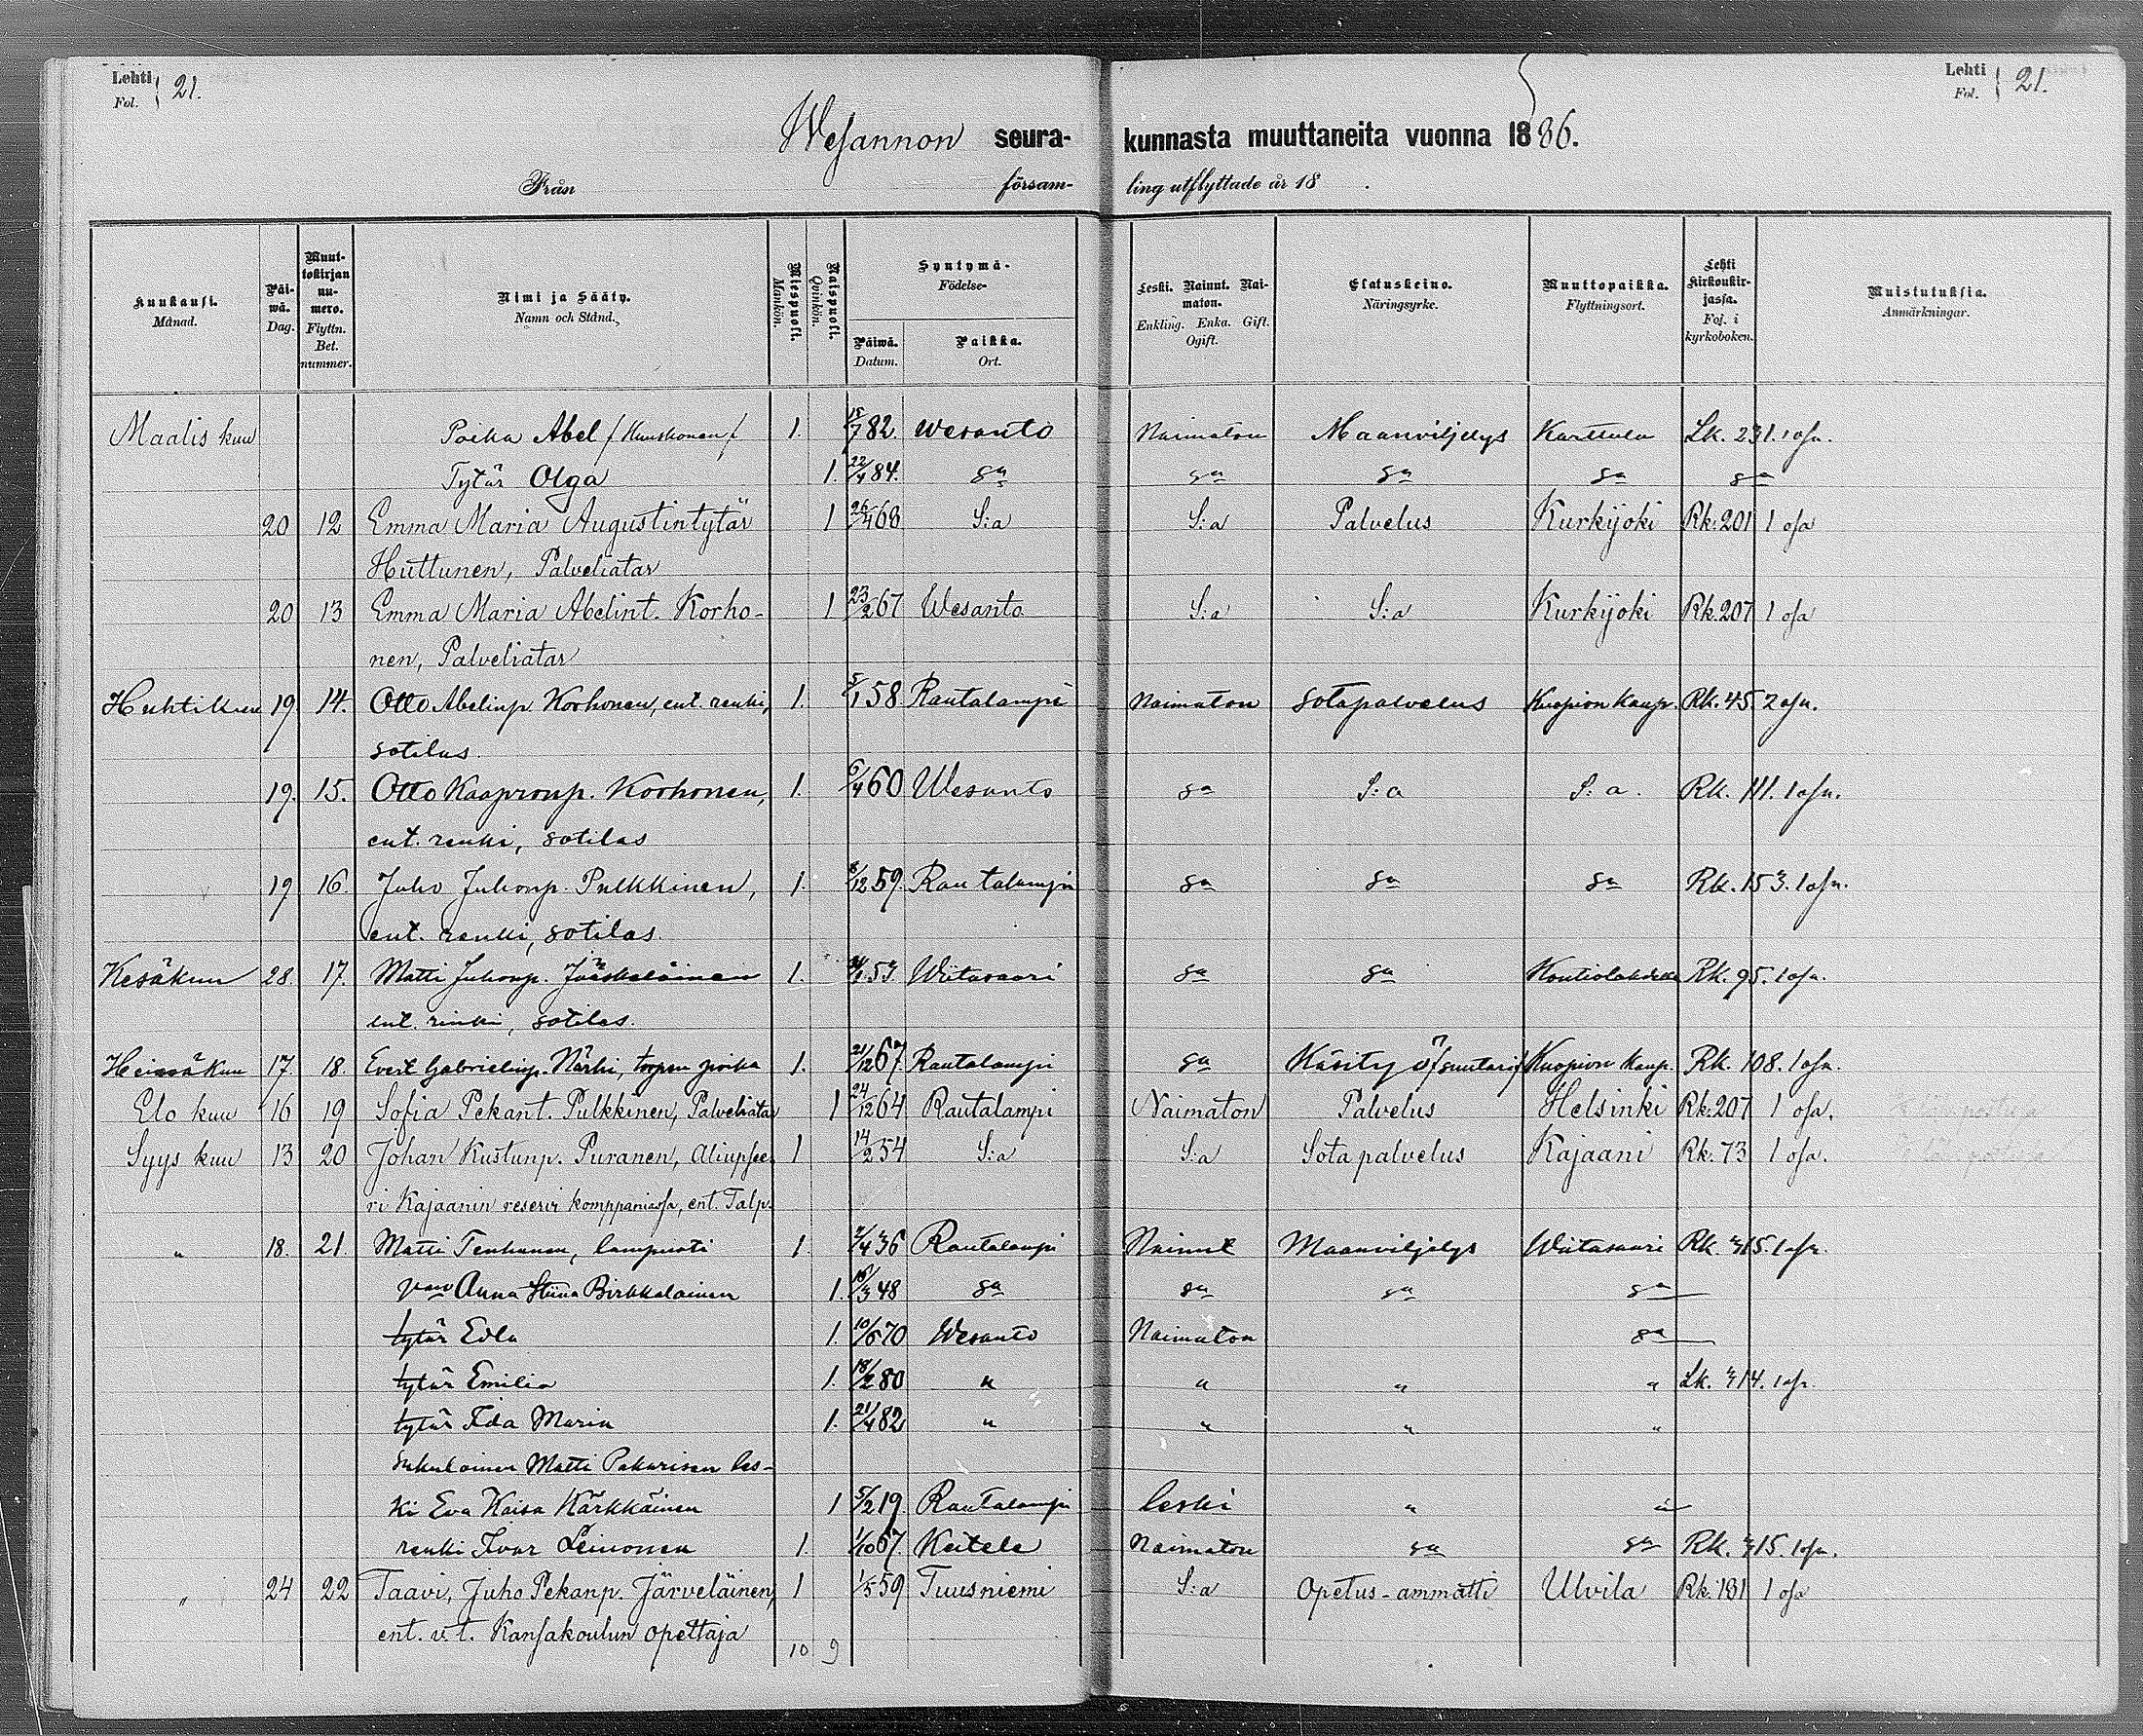 Lehti Fol. 21.
Lehti Fol. 21.
Wesannon seura- kunnasta muuttaneita vuonna 1886.
Från försam- ling utflyttade år 18 .
Kuukausi. Månad.
Päiwä. Dag.
Muuttokirjan numero. Flyttn. Bet. nummer.
Nimi ja Sääty. Namn och Stånd.
Miespuoli. Mankön.
Naispuoli. Qvinkön.
Syntymä- Födelse-
Päiwä. Datum.
Paikka. Ort.
Leski. Nainut. Naimaton. Enkling. Enka. Gift. Ogift.
Elatuskeino. Näringsyrke.
Muuttopaikka. Flyttningsort.
Lehti kirkonkirjassa. Fol. i kyrkoboken.
Muistutuksia. Anmärkningar.
Maalis kuu Poika Abel /Kuuskonen/ 1. 15/7 82. Wesanto Naimaton Maanviljelys Karttula Lk. 231. 1 osa.
Tytär Olga 1. 22/4 84. sa sa sa sa sa
20 12 Emma Maria Augustintytär 1 26/4 68 S:a S:a Palvelus Kurkijoki Rk. 201 1 osa
Huttunen, Palveliatar
20 13 Emma Maria Abelint. Korho- 1 23/2 67 Wesanto S:a S:a Kurkijoki Rk. 207 1 osa
nen, Palveliatar
Huhtikuu 19 14. Otto Abelinp. Korhonen, ent. renki, 1. 5/1 58 Rautalampi Naimaton Sotapalvelus Kuopion kaup. Rk. 45. 2 osa.
sotilas.
19. 15. Otto Kaapronp. Korhonen, 1. 6/4 60 Wesanto sa S:a S:a. Rk. 111. 1 osa.
ent. renki, sotilas
19 16. Juho Juhonp. Pulkkinen, 1. 8/12 59. Rautalampi sa sa sa Rk. 153. 1 osa.
ent. renki, sotilas.
Kesäkuu 28. 17. Matti Juhonp. Jääskeläinen 1. 53 Wiitasaari sa sa Kontiolahdelle Rk. 95. 1 osa.
ent. renki, sotilas.
Heinäkuu 17. 18. Evert Gabrielinp. Närhi, torpan poika 1. 21/12 67. Rautalampi sa Käsityö /suutari/ Kuopion kaup. Rk. 108. 1 osa.
Elo kuu 16 19 Sofia Pekant. Pulkkinen, Palveliatar 1 24/12 64 Rautalampi Naimaton Palvelus Helsinki Rk. 207 1 osa.
Syys kuu 13 20 Johan Kustunp. Puranen, Aliupsee- 1 14/2 54 S:a S:a Sotapalvelus Kajaani Rk. 73 1 osa.
ri Kajaanin reservi komppaniassa, ent. Talp.
" 18. 21. Matti Tenhunen, lampuoti 1. 7/4 36 Rautalampi Nainut Maanviljelys Wiitasaari Rk. 315. 1 osa.
vmo Anna Stiina Pirkkalainen 1. 15/3 48 sa sa sa sa
tytär Edla 1. 10/5 70 Wesanto Naimaton sa
tytär Emilia 1. 18/2 80 " " " " Lk. 314. 1 osa.
tytär Iida Maria 1. 21/4 82 " " " "
sukulainen Matti Pakarisen les-
ki Eva Kaisa Kärkkäinen 1 5/2 19. Rautalampi leski " "
renki Ivar Leinonen 1. 1/10 67. Keitele Naimaton sa sa Rk. 315. 1 osa.
" 24 22 Taavi, Juho Pekanp. Järveläinen, 1 1/5 59 Tuusniemi S:a Opetus-ammatti Ulvila Rk. 131 1 osa
ent. v.t. Kansakoulun opettaja
10 9